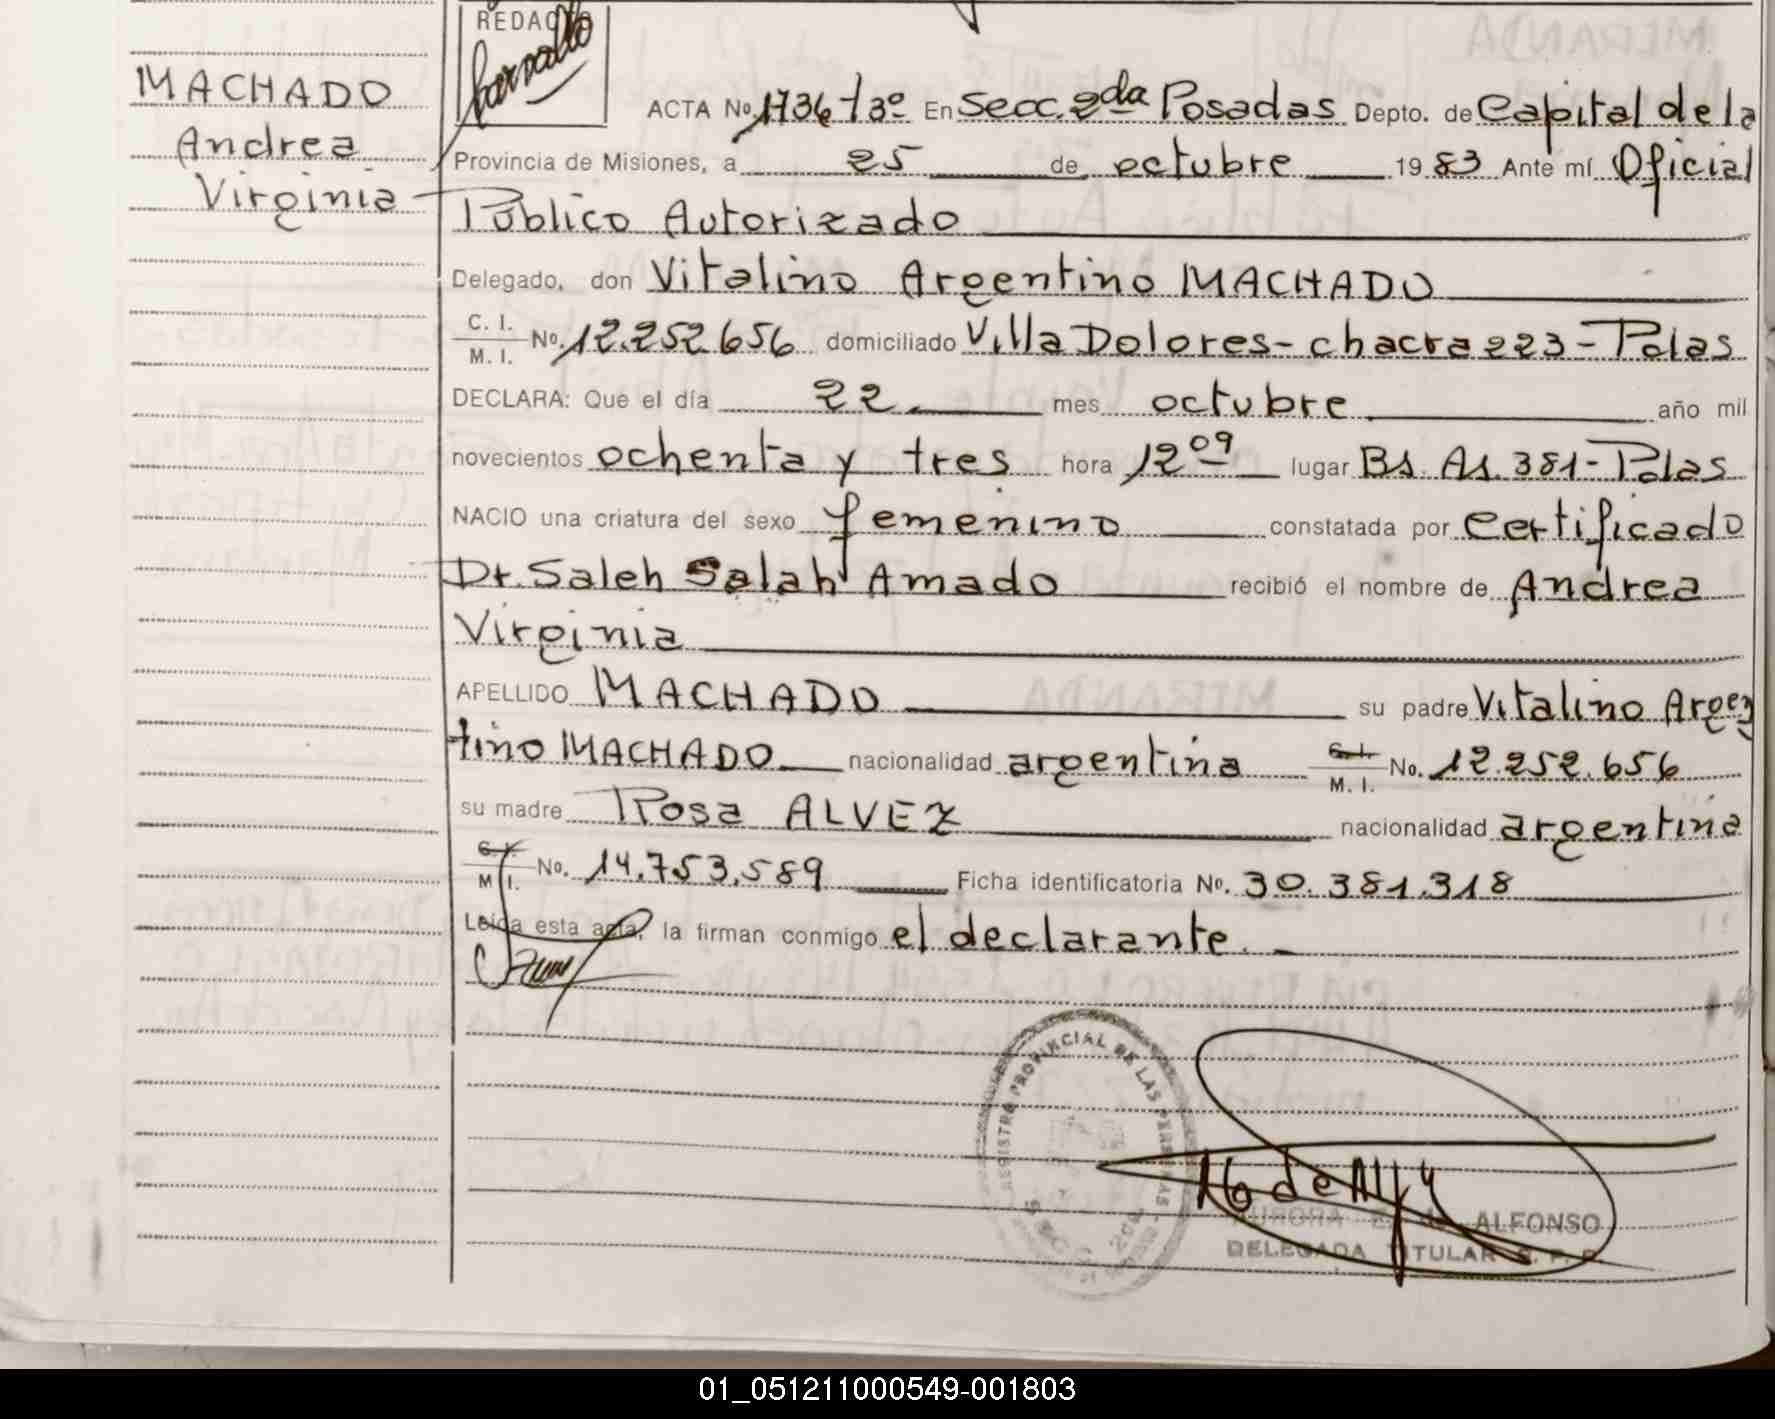 REDACTO
MACHADO
Andrea
Virginia
ACTA No. 1736 T3º En Secc. 2da Posadas Depto. de Capital de la
Provincia de Misiones, a 25 de octubre 1983 Ante mí Oficial
Público Autorizado
Delegado, don Vitalino Argentino MACHADO
C. I.
M. I. No. 12.252.656 domiciliado Villa Dolores - chacra 223 - Pdas
DECLARA: Que el día 22 mes octubre año mil
novecientos ochenta y tres hora 12 09 lugar Bs. As. 381 - Pdas
NACIO una criatura del sexo femenino constatada por certificado
Dr. Saleh Salah Amado recibió el nombre de Andrea
Virginia
APELLIDO MACHADO su padre Vitalino Argen
tino MACHADO nacionalidad argentina C. I. M. I. No. 12.252.656
su madre Rosa ALVEZ nacionalidad argentina
C. I. M. I. No. 14.753.589 Ficha identificatoria No. 30.381.318
Leida esta acta, la firman conmigo el declarante.
REGISTRO PROVINCIAL DE LAS PERSONAS
SECC. 2da
AURORA E. de ALFONSO
DELEGADA TITULAR R. P. P.
01_051211000549-001803